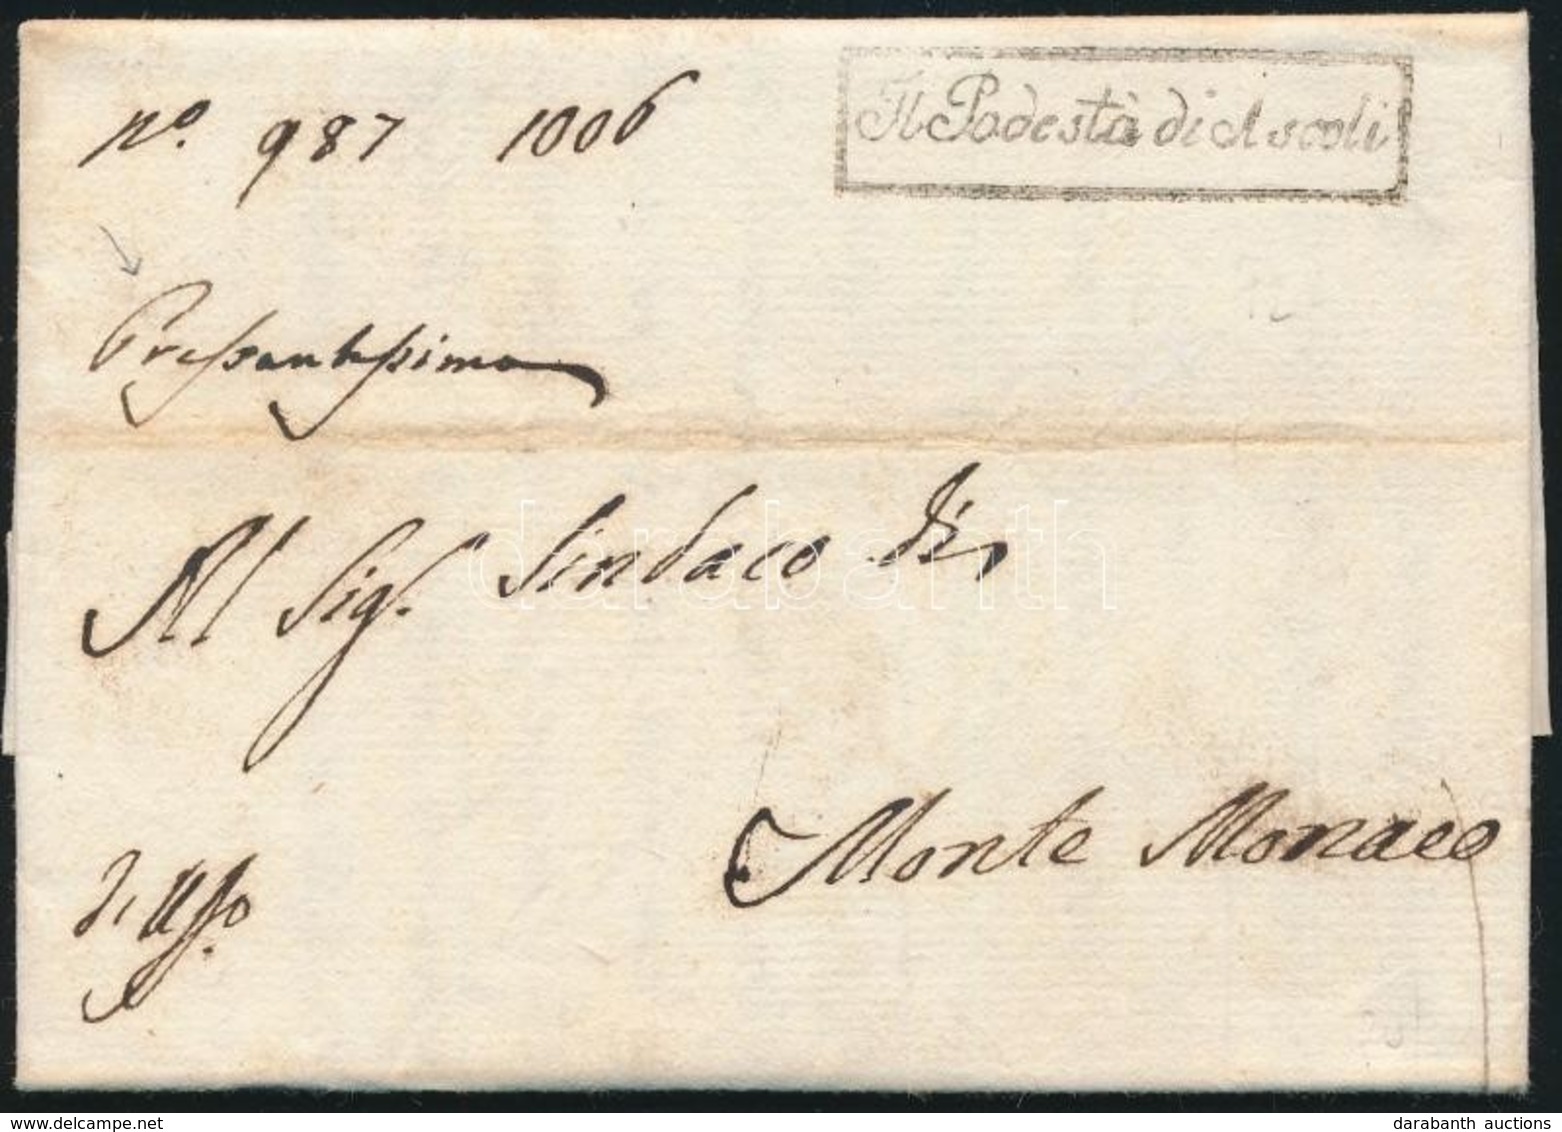 nº. 987 1006
Il Podestà di Ascoli
Pressantissima
Al Sigr. Sindaco di
darabanth
Monte Monaco
di Uffo.
darabanth auctions